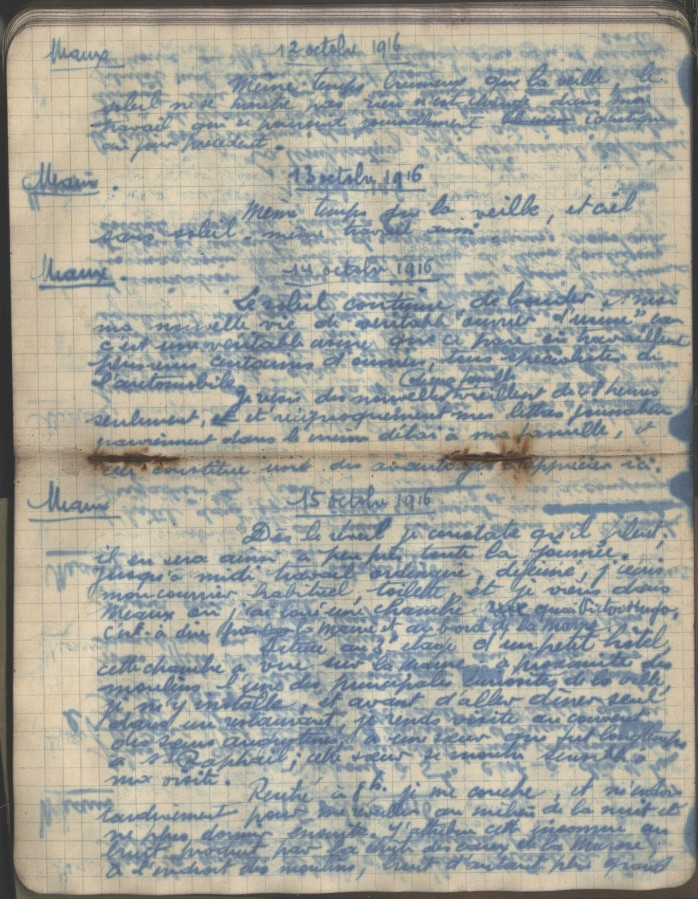 Meaux 12 octobre 1916
Même temps brumeux que la veille le
soleil ne se montre pas rien n'est changé dans mon
travail qui se poursuit journellement identique
au jour précédent.
Meaux. 13 octobre 1916
Même temps que la veille, et ciel
sans soleil, même travail aussi
Meaux. 14 octobre 1916
Le soleil continue de bouder, moi
ma nouvelle vie de véritable "ouvrier d'usine" car
c'est une véritable usine que ce parc où travaillent
plusieurs centaines d'ouvriers, tous spécialistes de
l'automobile.
Je reçois des nouvelles de 48 heures
seulement, et réciproquement mes lettres
parviennent dans le même délai à ma famille, et
cela constitue un des avantages à apprécier ici.
Meaux 15 octobre 1916
Dès le réveil je constate qu'il pleut,
il en sera ainsi à peu près toute la journée.
Jusqu'à midi travail ordinaire, déjeuné, j'écris
mon courrier habituel, toilette et je viens dans
Meaux où j'ai loué une chambre quai Victor Hugo,
c'est-à-dire au bord de la Marne
Située au étage d'un petit hôtel,
cette chambre a vue sur la Marne à proximité des
moulins l'une des principales de la ville,
je m'y installe, et avant d'aller dîner seul
dans un restaurant, je rends visite au couvent
des sœurs augustines, à une sœur qui fut longtemps
à St Raphaël; cette sœur se montre sensible à
ma visite.
Rentré à 8h. je me couche, et m'endors
tardivement pour me réveiller au milieu de la nuit et
ne plus dormir ensuite. J'attribue cette insomnie au
bruit produit par la chute des eaux de la Marne,
à l'endroit des moulins, bruit d'autant plus grand